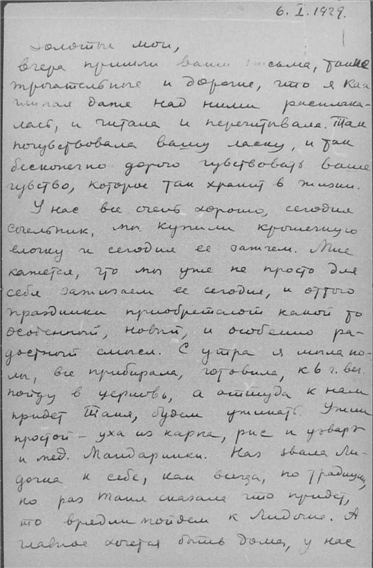 6. I. 1929.
Золотые мои,
вчера пришли ваши письма, такие
трогательные и дорогие, что я как
читала даже над ними расплака-
лась, и читала и перечитывала. Так
почувствовала вашу ласку, и так
бесконечно дорого чувствовать ваше
чувство, которое так хранит в жизни.
У нас все очень хорошо, сегодня
сочельник, мы купили крошечную
елочку и сегодня ее зажжем. Мне
кажется, что мы уже не просто для
себя зажигаем ее сегодня, и оттого
праздники приобретают какой то
особенный, новый, и особенно ра-
достный смысл. С утра я мыла по-
лы, все прибирала, готовила, к 6 ч. веч.
пойду в церковь, а оттуда к нам
придет Таня, будем ужинать. Ужин
простой – уха из карпа, рис и узвар
и мед. Мандаринки. Нас звала Ли-
дочка к себе, как всегда, по традиции,
но раз Таня сказала что придет,
то врядли пойдем к Лидочке. А
главное хочется быть дома, у нас